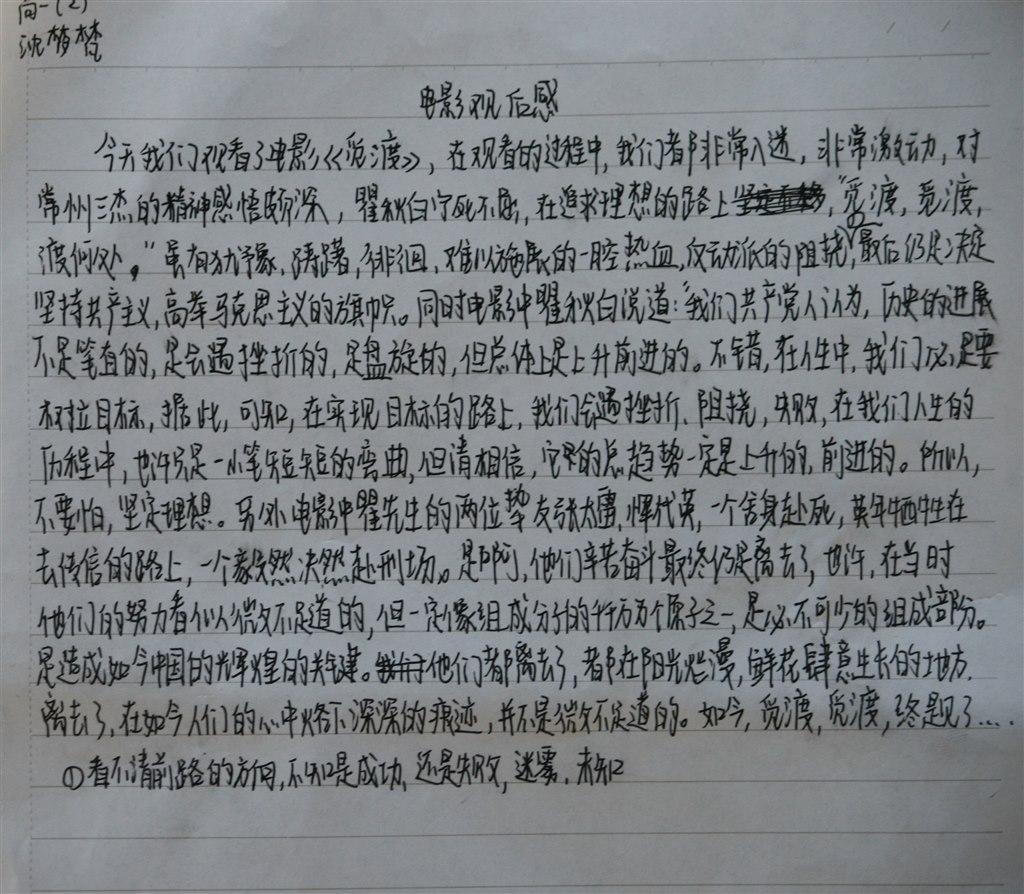 高一(2)
沈梦梵
电影观后感
今天我们观看了电影《觅渡》,在观看的过程中,我们都非常入迷,非常激动,对
常州三杰的精神感悟颇深,瞿秋白宁死不屈,在追求理想的路上,“觅渡,觅渡,
渡何处。”虽有犹豫,踌躇,徘徊,难以施展的一腔热血,反动派的阻挠,①最后仍是决定
坚持共产主义,高举马克思主义的旗帜。同时电影中瞿秋白说道:“我们共产党人认为,历史的进展
不是笔直的,是会遇挫折的,是盘旋的,但总体上是上升前进的。不错,在人生中,我们必是要
树立目标,据此,可知,在实现目标的路上,我们会遇挫折、阻挠,失败,在我们人生的
历程中,也许只是一小笔短短的弯曲,但请相信,它的总趋势一定是上升的,前进的。所以,
不要怕,坚定理想。另外电影中瞿先生的两位挚友张太雷,恽代英,一个舍身赴死,英年牺牲在
去传信的路上,一个毅然决然赴刑场。是啊,他们辛苦奋斗最终仍是离去了,也许,在当时
他们的努力看似微不足道的,但一定像组成分子的千千万万个原子之一,是必不可少的组成部分。
是造成如今中国的辉煌的关键。他们都离去了,都在阳光烂漫,鲜花肆意生长的地方.
离去了,在如今人们的心中烙下深深的痕迹,并不是微不足道的。如今,觅渡,觅渡,终是见了....
①看不清前路的方向,不知是成功,还是失败,迷雾.未知